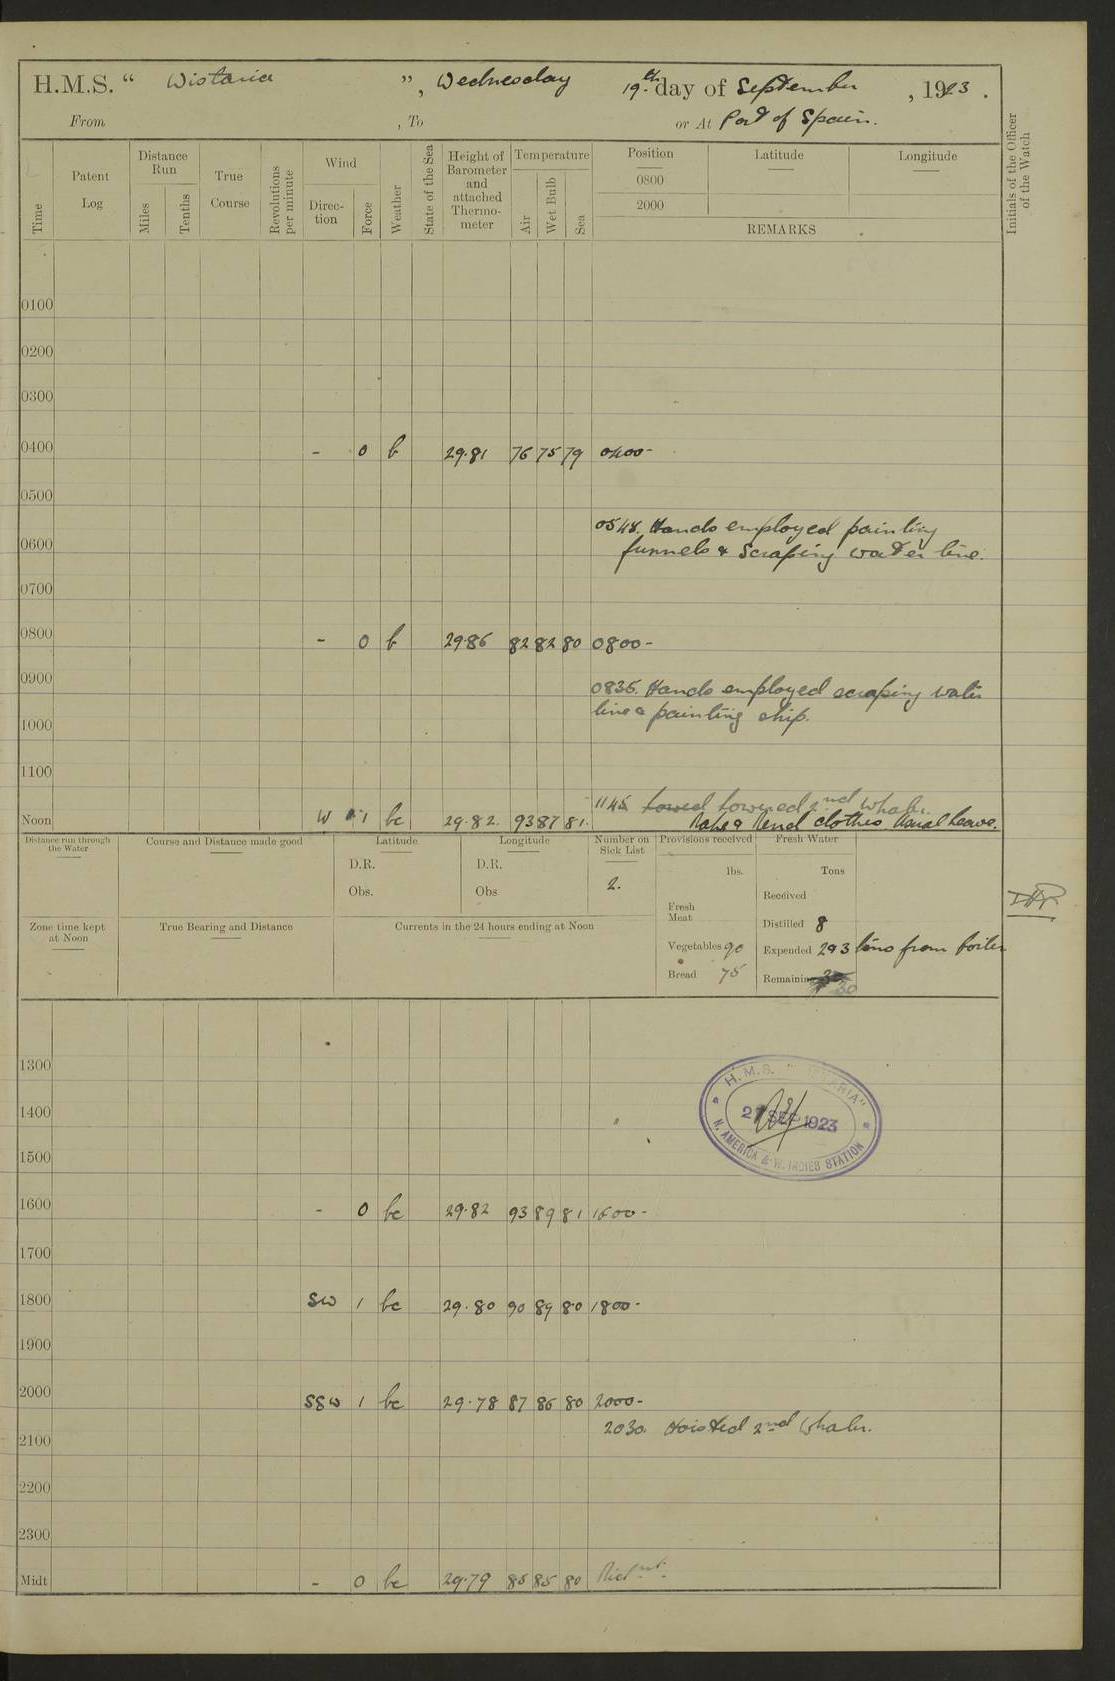 H.M.S. “ Wistaria ”, Wednesday 19th day of September, 1923.
From , To or At Port of Spain.
Time
Patent Log
Distance Run
Miles
Tenths
True Course
Revolutions per minute
Wind
Direction
Force
Weather
State of the Sea
Height of Barometer and attached Thermometer
Temperature
Air
Wet Bulb
Sea
Position
0800
2000
Latitude
Longitude
REMARKS
Initials of the Officer of the Watch
0100
0200
0300
0400 - 0 b 29.81 76 75 79 0400-
0500
0548. Hands employed painting
0600 funnels & scraping water line.
0700
0800 - 0 b 29.86 82 82 80 0800-
0900 0835. Hands employed scraping water
line & painting ship.
1000
1100
1145 lowered 2nd Whaler.
Noon W 1 bc 29.82 93 87 81. Make & Mend clothes Usual Leave.
Distance run through the Water
Course and Distance made good
Latitude
D.R.
Obs.
Longitude
D.R.
Obs
Number on Sick List
2.
Provisions received
lbs.
Fresh Meat
Vegetables 90
Bread 75
Fresh Water
Tons
Received
Distilled 8
Expended 2 & 3 tons from boiler
Remaining 30
Zone time kept at Noon
True Bearing and Distance
Currents in the 24 hours ending at Noon
1300
H.M.S. "WISTARIA"
1400
SEP 1923
N. AMERICA & W. INDIES STATION
1500
1600 - 0 bc 29.82 93 89 81 1600-
1700
1800 SW 1 bc 29.80 90 89 80 1800-
1900
2000 SSW 1 bc 29.78 87 86 80 2000-
2030. Hoisted 2nd Whaler.
2100
2200
2300
Midt - 0 bc 29.79 85 85 80 Midnt.